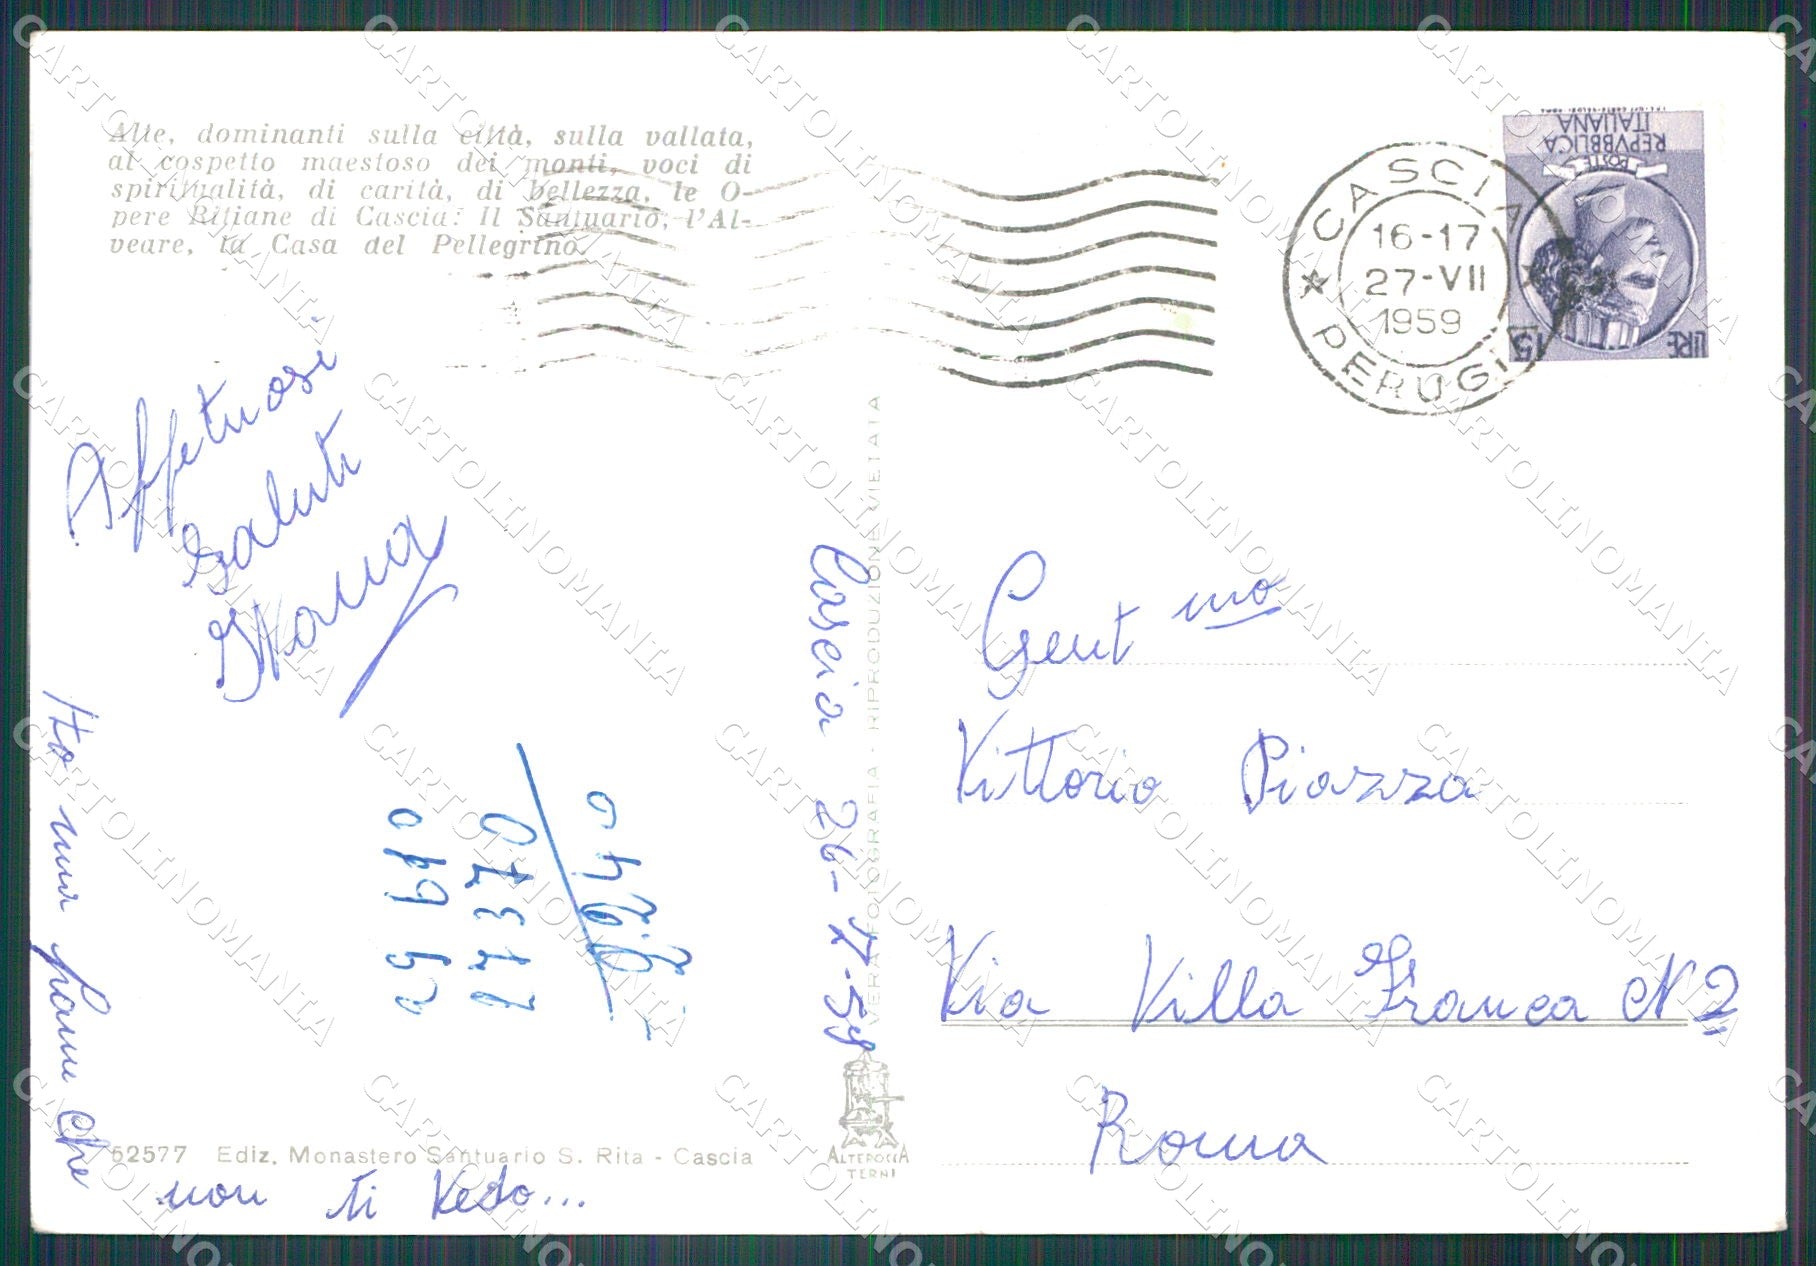 Alte, dominanti sulla città, sulla vallata,
al cospetto maestoso dei monti, voci di
spiritualità, di carità, di bellezza, le O-
pere Ritiane di Cascia: Il Santuario, l'Al-
veare, la Casa del Pellegrino.
CASCIA
16-17
27-VII
1959
PERUGIA
REPVBBLICA
ITALIANA
POSTE
LIRE
15
Affettuosi
Saluti
Ho una fame che
non ti vedo...
Cascia 26-7-59
VERA FOTOGRAFIA - RIPRODUZIONE VIETATA
Gent mo
Vittorio Piazza
Via Villa Franca N 2
Roma
52577 Ediz. Monastero Santuario S. Rita - Cascia
ALTEROCCA
TERNI
CARTOLINOMANIA